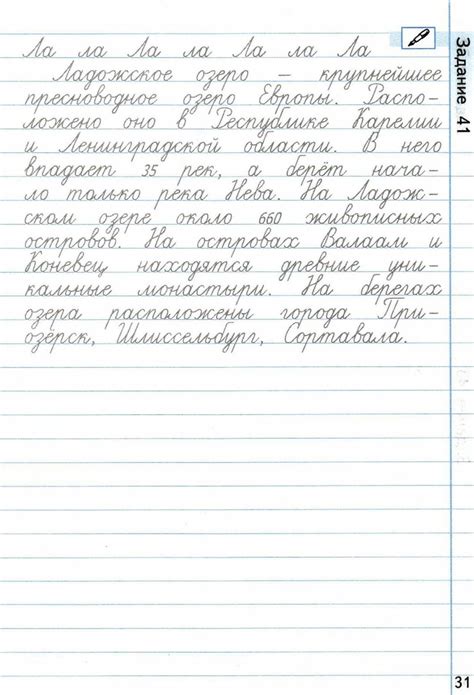 Ла ла Ла ла Ла ла Ла
Ладожское озеро – крупнейшее
пресноводное озеро Европы. Распо-
ложено оно в Республике Карелии
и Ленинградской области. В него
впадает 35 рек, а берёт нача-
ло только река Нева. На Ладож-
ском озере около 660 живописных
островов. На островах Валаам и
Коневец находятся древние уни-
кальные монастыри. На берегах
озера расположены города При-
озёрск, Шлиссельбург, Сортавала.
Задание 41
31